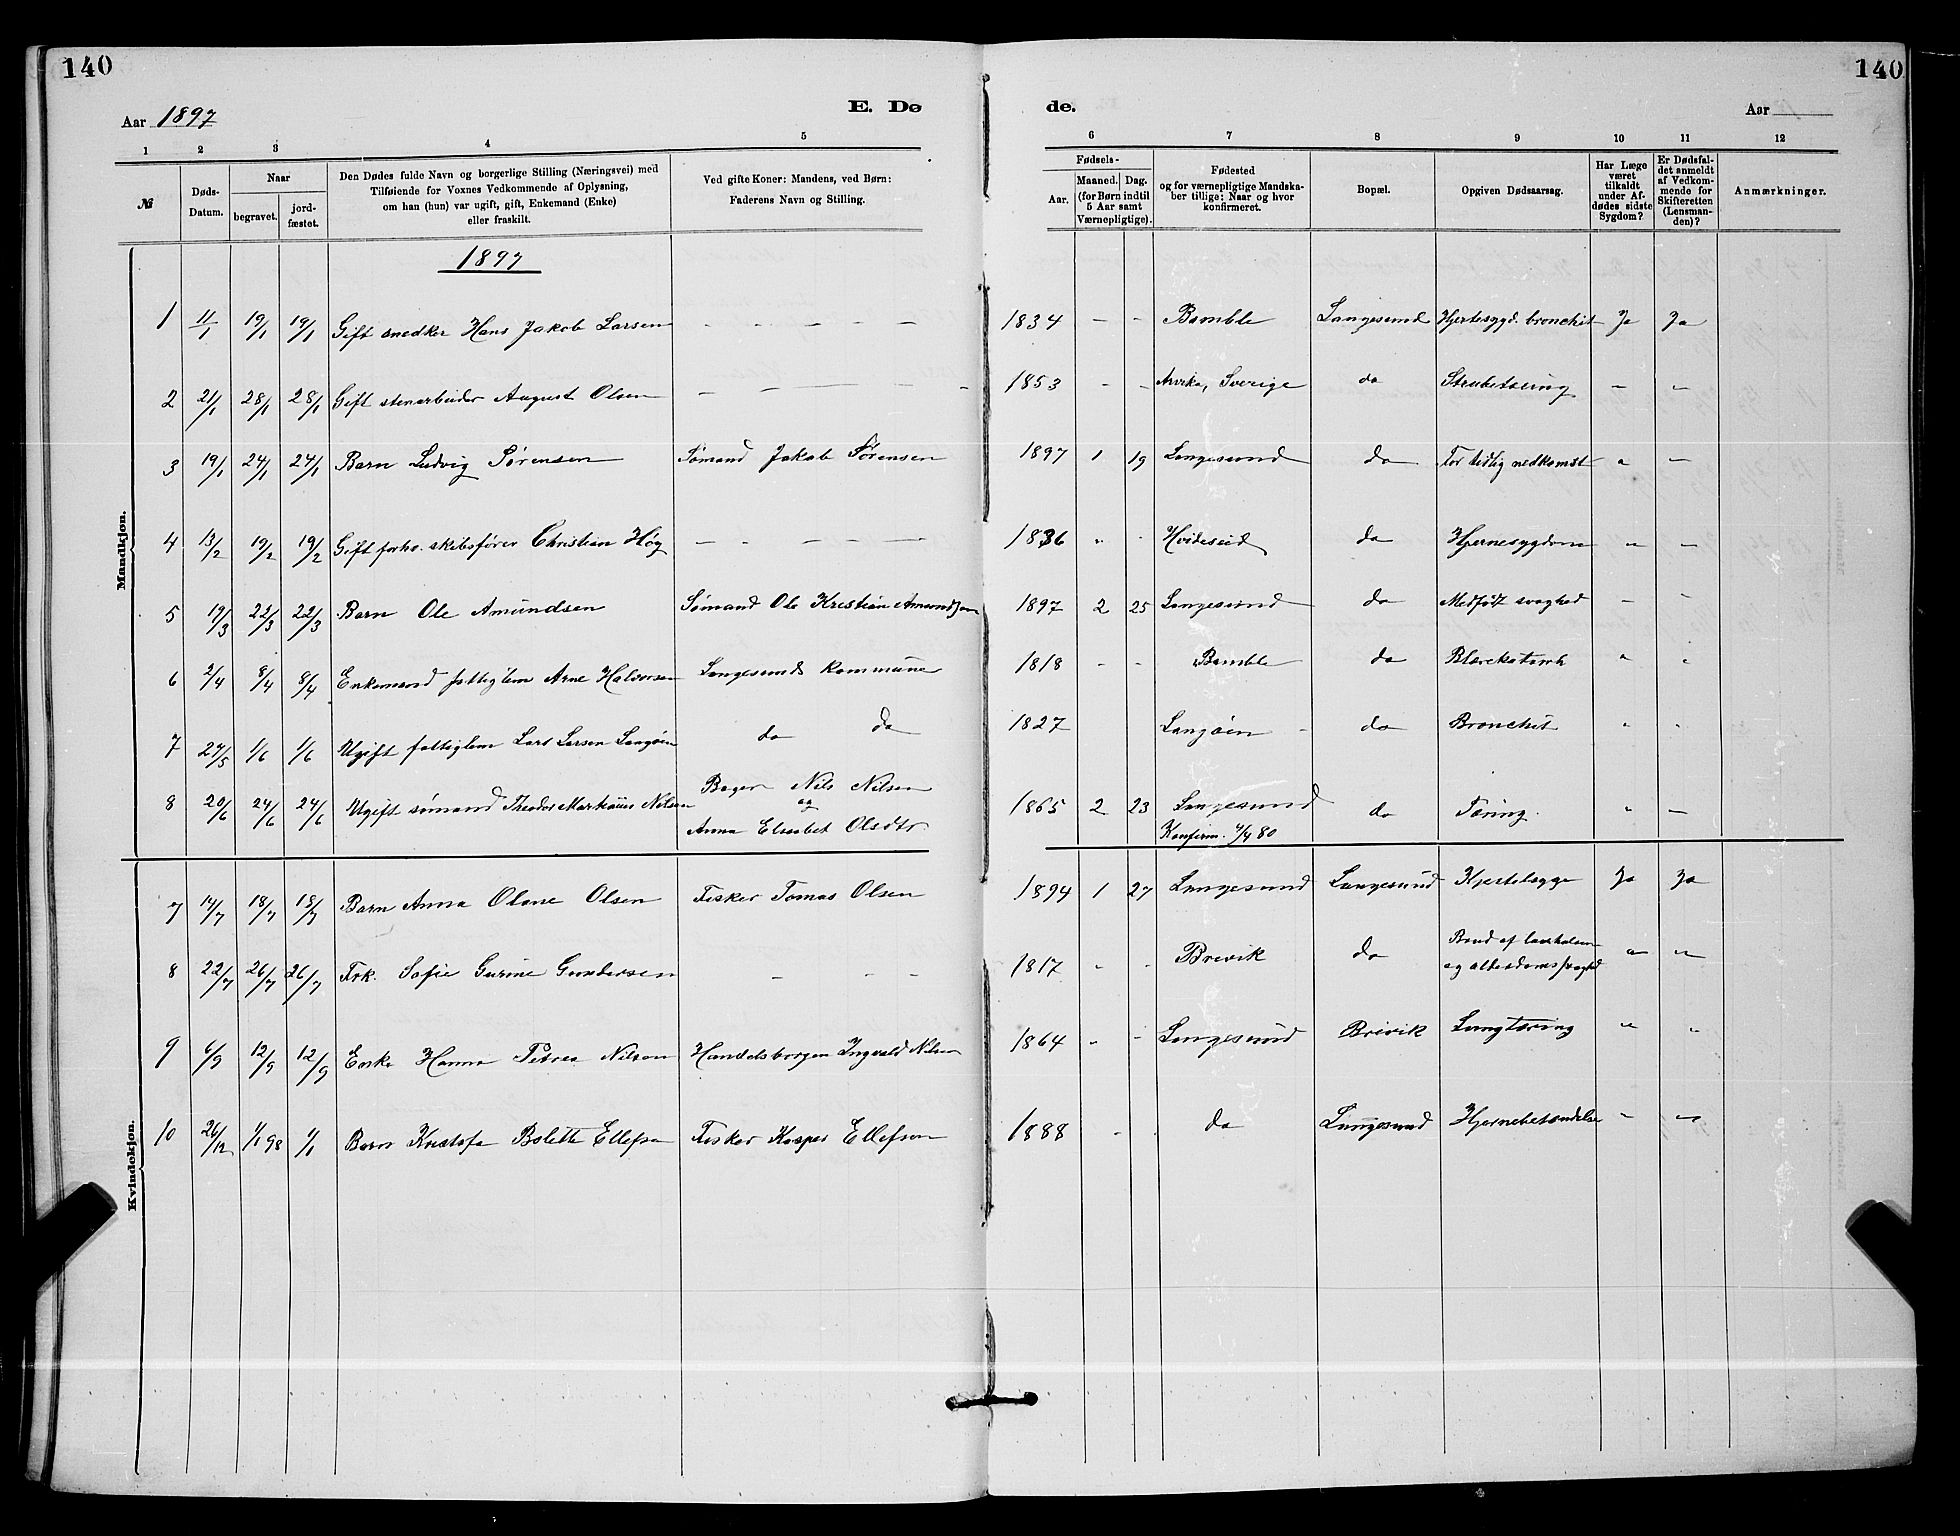 140
140
Aar 1897
E. Dø
de.
Aar
1 2 3 4 5
6 7 8 9 10 11 12
№
Døds-
Datum.
Naar
begravet.
jord-
fæstet.
Den Dødes fulde Navn og borgerlige Stilling (Næringsvei) med
Tilføiende for Voxnes Vedkommende af Oplysning,
om han (hun) var ugift, gift, Enkemand (Enke)
eller fraskilt.
Ved gifte Koner: Mandens, ved Børn:
Faderens Navn og Stilling.
Fødsels-
Aar.
Maaned. Dag.
(for Børn indtil
5 Aar samt
Værnepligtige).
Fødested
og for værnepligtige Mandska-
ber tillige: Naar og hvor
konfirmeret.
Bopæl.
Opgiven Dødsaarsag.
Har Læge
været
tilkaldt
under Af-
dødes sidste
Sygdom?
Er Dødsfal-
det anmeldt
af Vedkom-
mende for
Skifteretten
(Lensman-
den)?
Anmærkninger.
1897
Mandkjøn.
1 11/1 19/1 19/1 Gift snedker Hans Jakob Larsen - - - - - 1834 - - Bamble Langesund Hjertesygd. bronchit Ja Ja
2 21/1 28/1 28/1 Gift stenarbeider August Olsen - - - - - 1853 - - Arvika, Sverige do Strubetæring - "
3 19/1 24/1 24/1 Barn Ludvig Sørensen Sømand Jakob Sørensen 1897 1 19 Langesund do For tidlig nedkomst " -
4 13/2 19/2 19/2 Gift forhv. skibsfører Christian Høg - - - - - 1836 " " Hvideseid do Hjernesygdom " -
5 19/3 22/3 22/3 Barn Ole Amundsen Sømand Ole Kristian Amundsen 1897 2 25 Langesund do Medfødt svaghed - -
6 2/4 8/4 8/4 Enkemand fattiglem Arne Halvorsen Langesunds kommune 1818 - - Bamble do Blærekatarrh " "
7 27/5 1/6 1/6 Ugift fattiglem Lars Larsen Langøen do do 1827 Langøen - do Bronchit " "
8 20/6 24/6 24/6 Ugift sømand Theodor Markus Nilsen Bager Nils Nilsen
og
Anna Elisabet Olsdtr. 1865 2 23 Langesund
Konfirm. 4/4 80 do Tæring. " -
Kvindekjøn.
7 14/7 18/7 18/7 Barn Anna Olane Olsen Fisker Tomas Olsen 1894 1 27 Langesund Langesund Kjertelsyge Ja Ja
8 22/7 26/7 26/7 Frk. Sofie Gurine Gundersen - - - 1817 - - Brevik do Brud af laarhalsen
og alderdomssvaghed " "
9 6/9 12/9 12/9 Enke Hanna Petrea Nilsen Handelsborger Ingvald Nilsen 1864 - - Langesund Brevik Lungtæring " "
10 26/12 1/1 98 1/1 Barn Kristofa Bolette Ellefsen Fisker Kasper Ellefsen 1888 - . do Langesund Hjernebetændelse " "